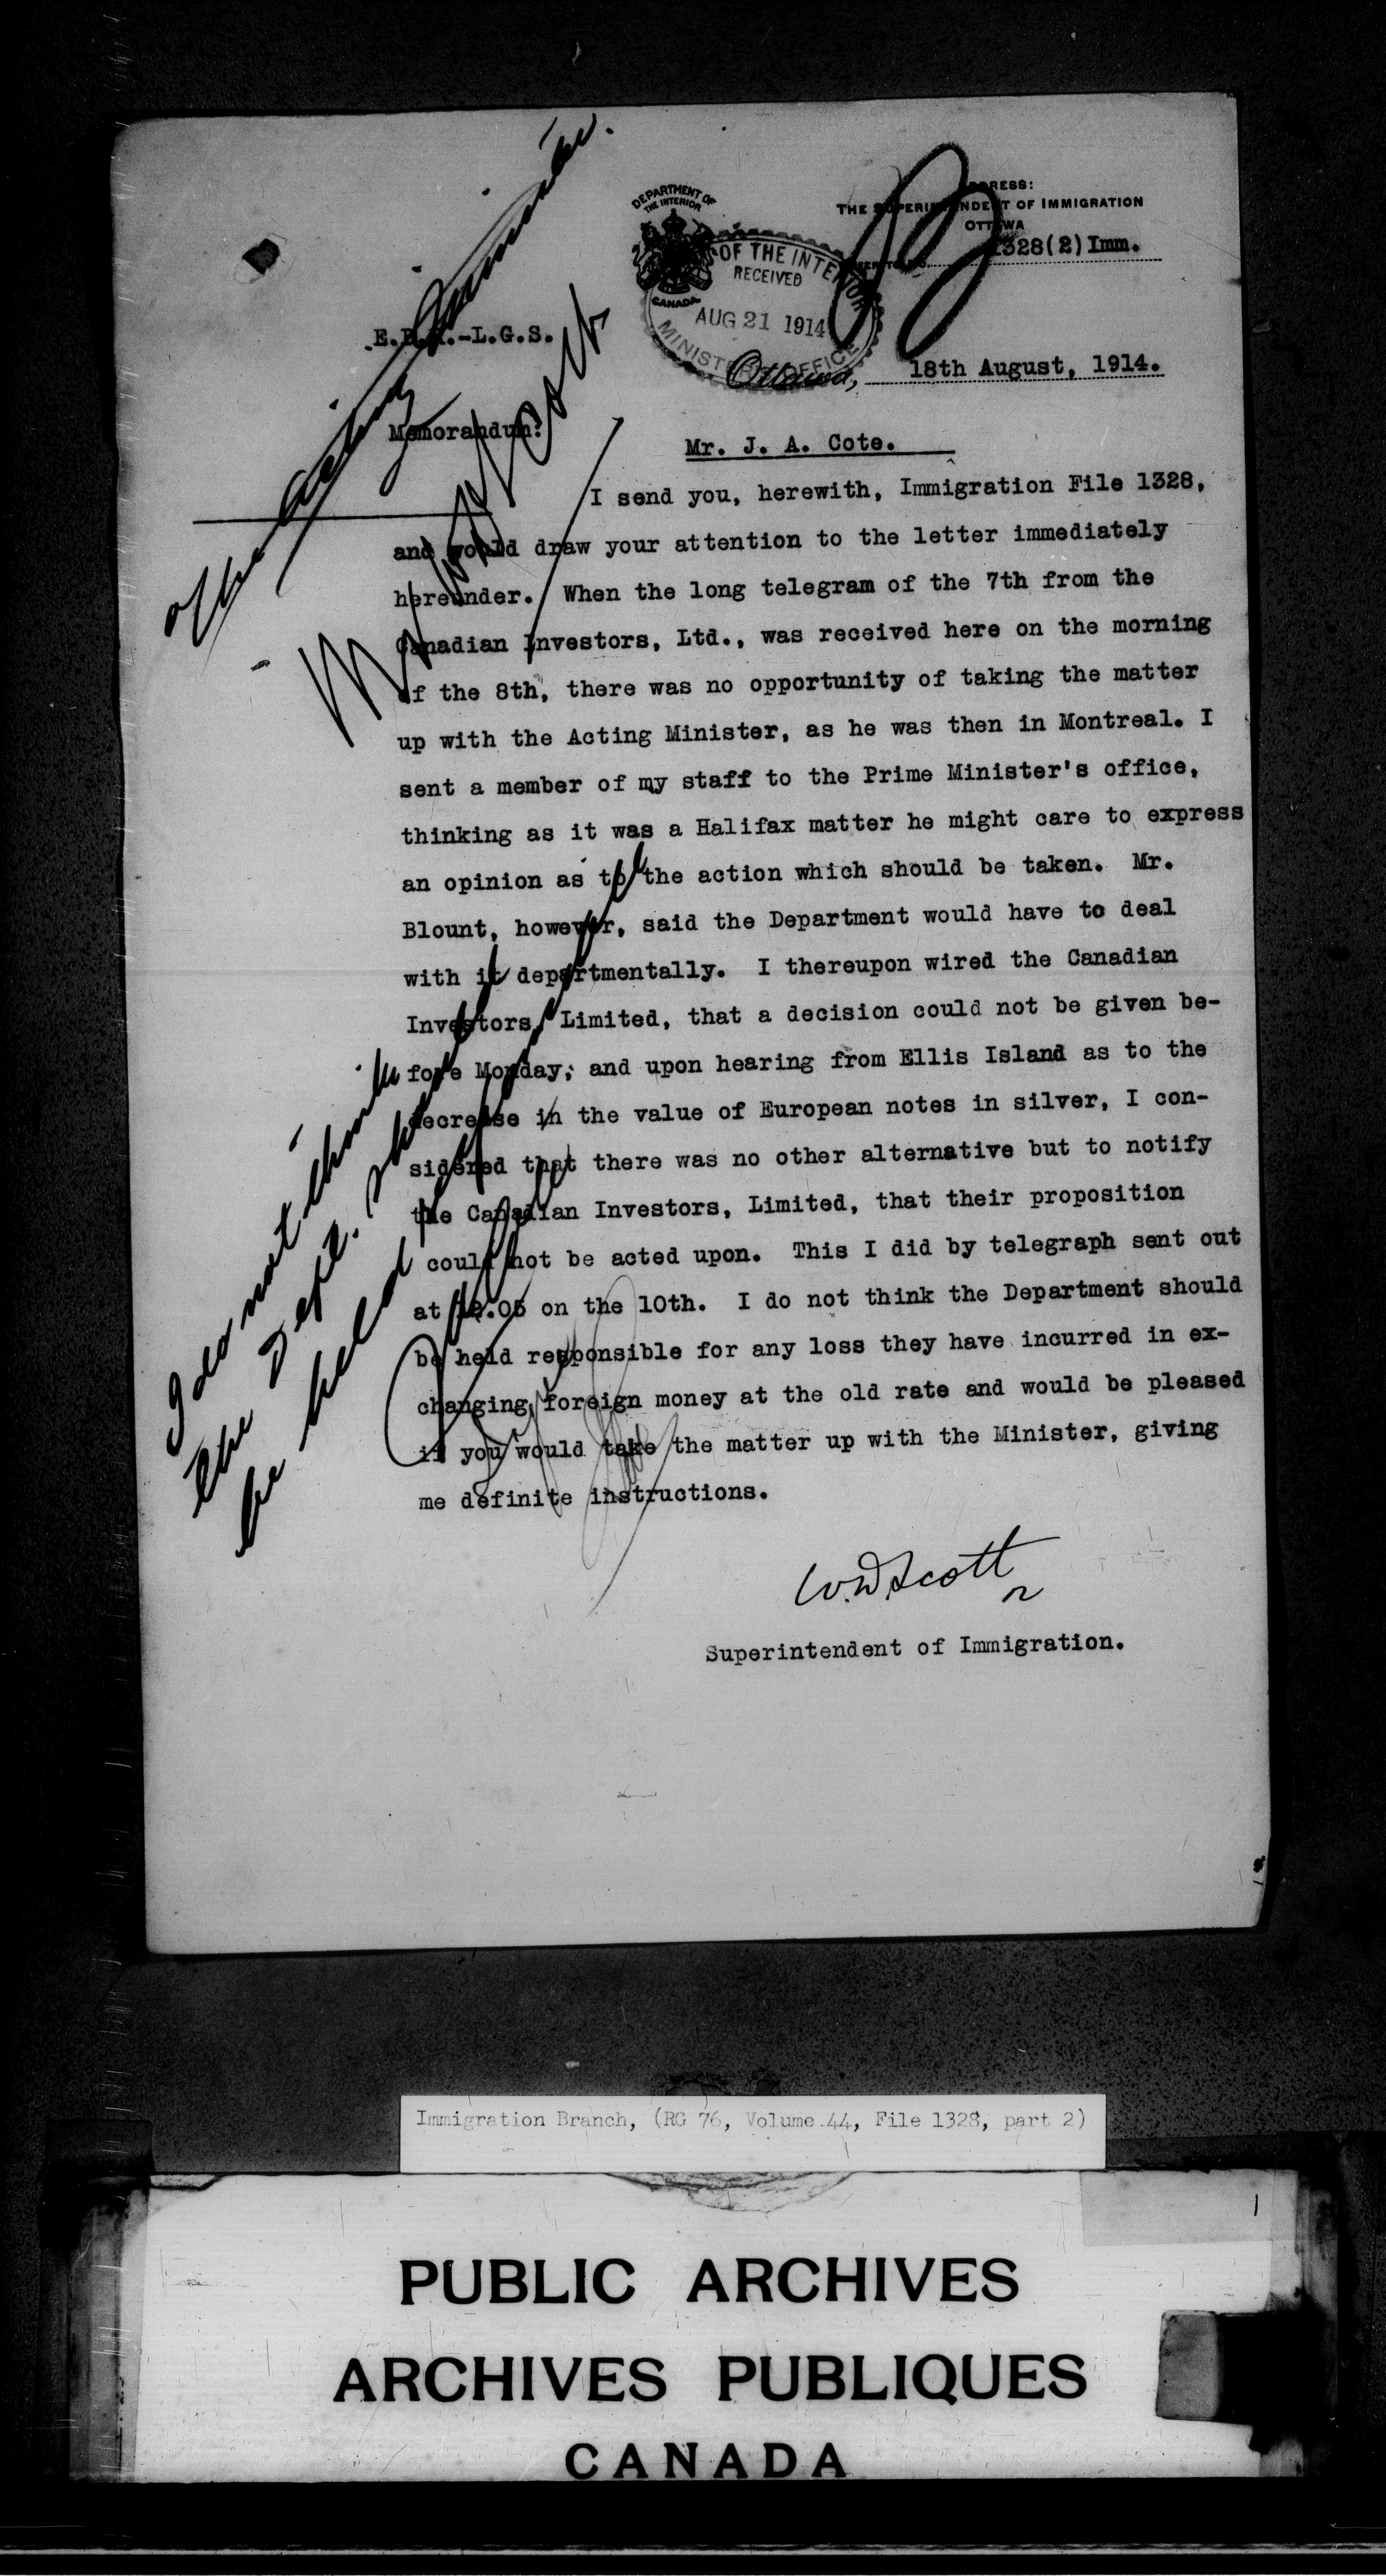 DEPARTMENT OF
THE INTERIOR
CANADA
OF THE INTERIOR
RECEIVED
AUG 21 1914
MINISTER'S OFFICE
THE SUPERINTENDENT OF IMMIGRATION
OTTAWA
1328(2) Imm.
-L.G.S.
Ottawa, 18th August, 1914.
Memorandum:
Mr. J. A. Cote.
I send you, herewith, Immigration File 1328,
and would draw your attention to the letter immediately
hereunder. When the long telegram of the 7th from the
Canadian Investors, Ltd., was received here on the morning
of the 8th, there was no opportunity of taking the matter
up with the Acting Minister, as he was then in Montreal. I
sent a member of my staff to the Prime Minister's office,
thinking as it was a Halifax matter he might care to express
an opinion as to the action which should be taken. Mr.
Blount, however, said the Department would have to deal
with it departmentally. I thereupon wired the Canadian
Investors, Limited, that a decision could not be given be-
fore Monday; and upon hearing from Ellis Island as to the
decrease in the value of European notes in silver, I con-
sidered that there was no other alternative but to notify
the Canadian Investors, Limited, that their proposition
could not be acted upon. This I did by telegraph sent out
at on the 10th. I do not think the Department should
be held responsible for any loss they have incurred in ex-
changing foreign money at the old rate and would be pleased
if you would take the matter up with the Minister, giving
me definite instructions.
W.D. Scott
Superintendent of Immigration.
Acting Minister.
Mr Scott
I do not think
the Dept. should
be held
Immigration Branch, (RG 76, Volume 44, File 1328, part 2)
PUBLIC ARCHIVES
ARCHIVES PUBLIQUES
CANADA